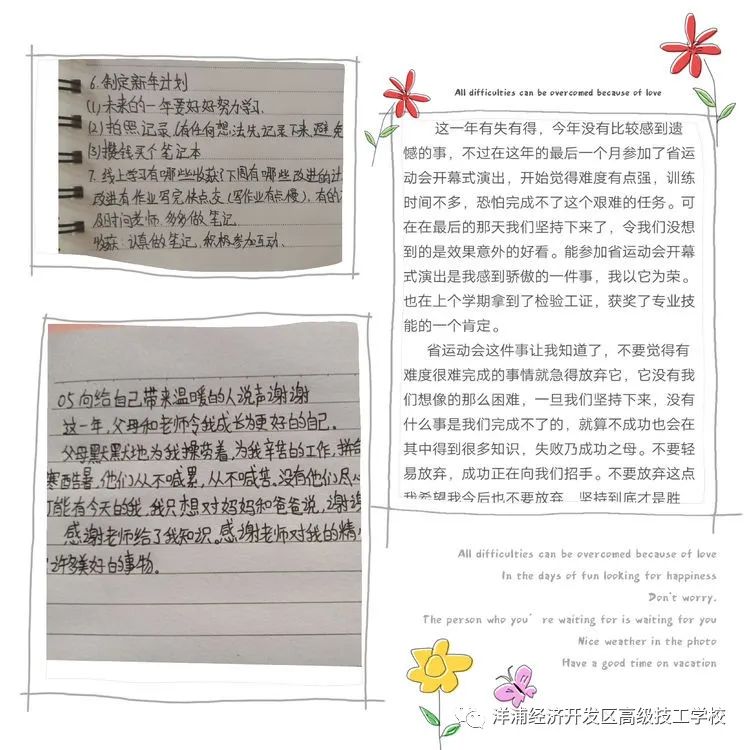 6.制定新年计划
(1)未来的一年要好好努力学习.
(2)拍照.记录.(有任何想法先记录下来.避免
(3)攒钱买个笔记本
7.线上学习有哪些收获(下周有哪些改进的计
改进有作业写完快点交(写作业有点慢).有的
及时间老师.多多做笔记
收获:认真做笔记,积极参加互动、
05向给自己带来温暖的人说声谢谢
这一年,父母和老师令我成长为更好的自己。
父母默默地为我操劳着,为我辛苦的工作,拼命
寒酷暑,他们从不喊累,从不喊苦。没有他们尽
可能有今天的我,我只想对妈妈和爸爸说,谢谢
感谢老师给了我知识。感谢老师对我的精
许多美好的事物。
All difficulties can be overcomed because of love
这一年有失有得，今年没有比较感到遗
憾的事，不过在这年的最后一个月参加了省运
动会开幕式演出，开始觉得难度有点强，训练
时间不多，恐怕完成不了这个艰难的任务。可
在在最后的那天我们坚持下来了，令我们没想
到的是效果意外的好看。能参加省运动会开幕
式演出是我感到骄傲的一件事，我以它为荣。
也在上个学期拿到了检验工证，获奖了专业技
能的一个肯定。
省运动会这件事让我知道了，不要觉得有
难度很难完成的事情就急得放弃它，它没有我
们想像的那么困难，一旦我们坚持下来，没有
什么事是我们完成不了的，就算不成功也会在
其中得到很多知识，失败乃成功之母。不要轻
易放弃，成功正在向我们招手。不要放弃这点
我希望我今后也不要放弃，坚持到底才是胜
All difficulties can be overcomed because of love
In the days of fun looking for happiness
Don't worry.
The person who you're waiting for is waiting for you
Nice weather in the photo
Have a good time on vacation
洋浦经济开发区高级技工学校